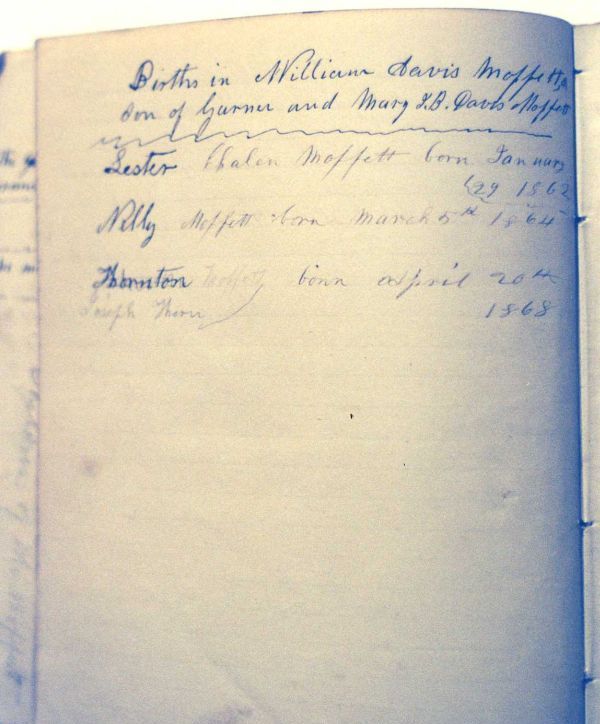 Births in William Davis Moffett,
son of Garner and Mary T.B. Davis Moffett
Lester Chalen Moffett born January
29 1862
Nelly Moffett born March 5th 1864
Thornton Moffett born April 20th
Joseph Thorn 1868